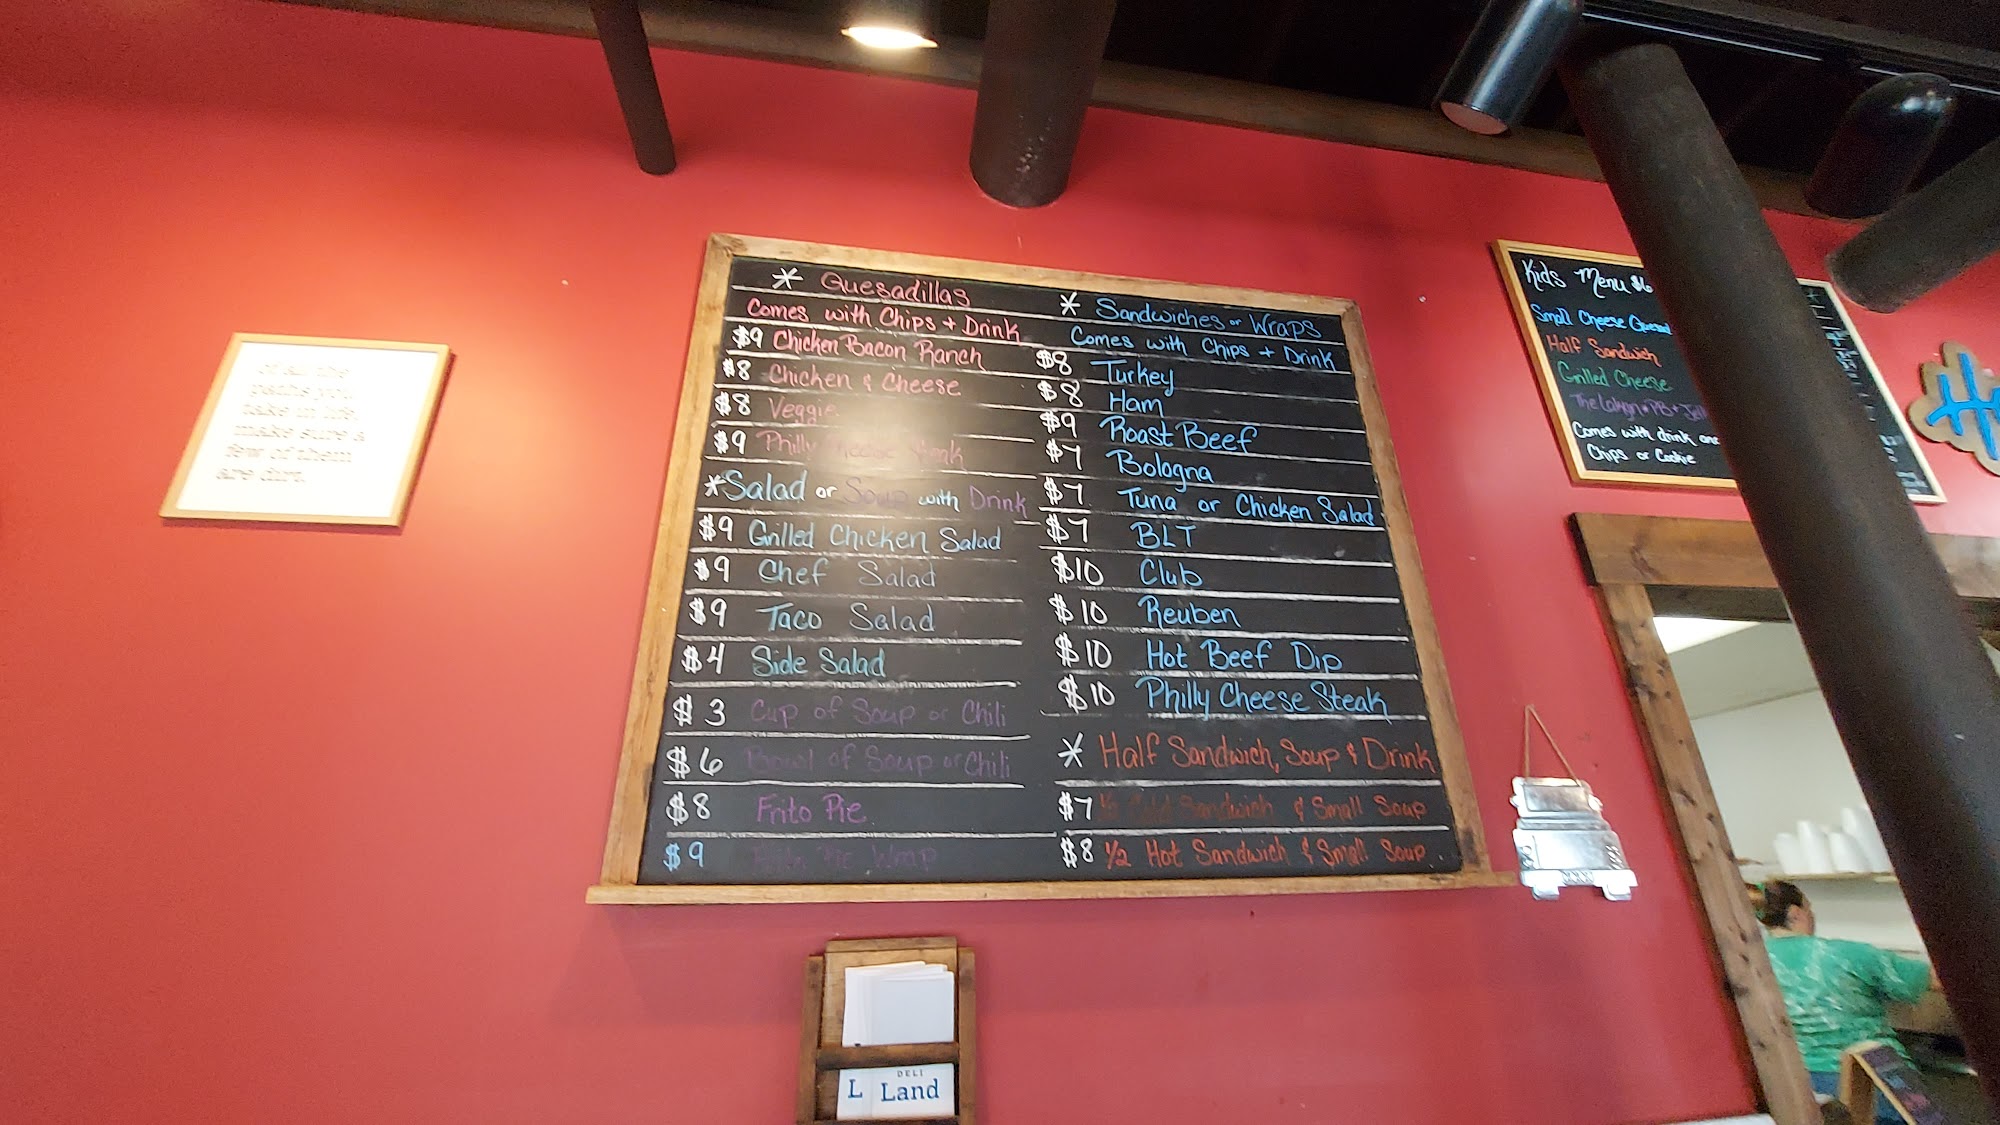 of all the
paths you
take in life,
make sure a
few of them
are dirt.
* Quesadillas
Comes with Chips + Drink
$9 Chicken Bacon Ranch
$8 Chicken & Cheese
$8 Veggie
$9 Philly Cheese Steak
*Salad or Soup with Drink
$9 Grilled Chicken Salad
$9 Chef Salad
$9 Taco Salad
$4 Side Salad
$3 Cup of Soup or Chili
$6 Bowl of Soup or Chili
$8 Frito Pie
$9 Frito Pie Wrap
* Sandwiches or Wraps
Comes with Chips + Drink
$8 Turkey
$8 Ham
$9 Roast Beef
$7 Bologna
$7 Tuna or Chicken Salad
$7 BLT
$10 Club
$10 Reuben
$10 Hot Beef Dip
$10 Philly Cheese Steak
* Half Sandwich, Soup & Drink
$7 1/2 Cold Sandwich & Small Soup
$8 1/2 Hot Sandwich & Small Soup
Kids Menu $6
Small Cheese
Half Sandwich
Grilled Cheese
PB + Jell
Comes with drink and
Chips or Cookie
DELI
L Land